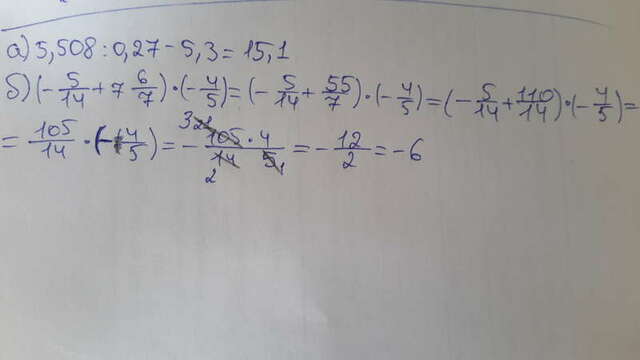 а) 5,508 : 0,27 - 5,3 = 15,1
б) (- 5/14 + 7 6/7) · (- 4/5) = (- 5/14 + 55/7) · (- 4/5) = (- 5/14 + 110/14) · (- 4/5) =
= 105/14 · (- 4/5) = - 3 21 105 · 4 / 14 2 5 1 = - 12/2 = - 6